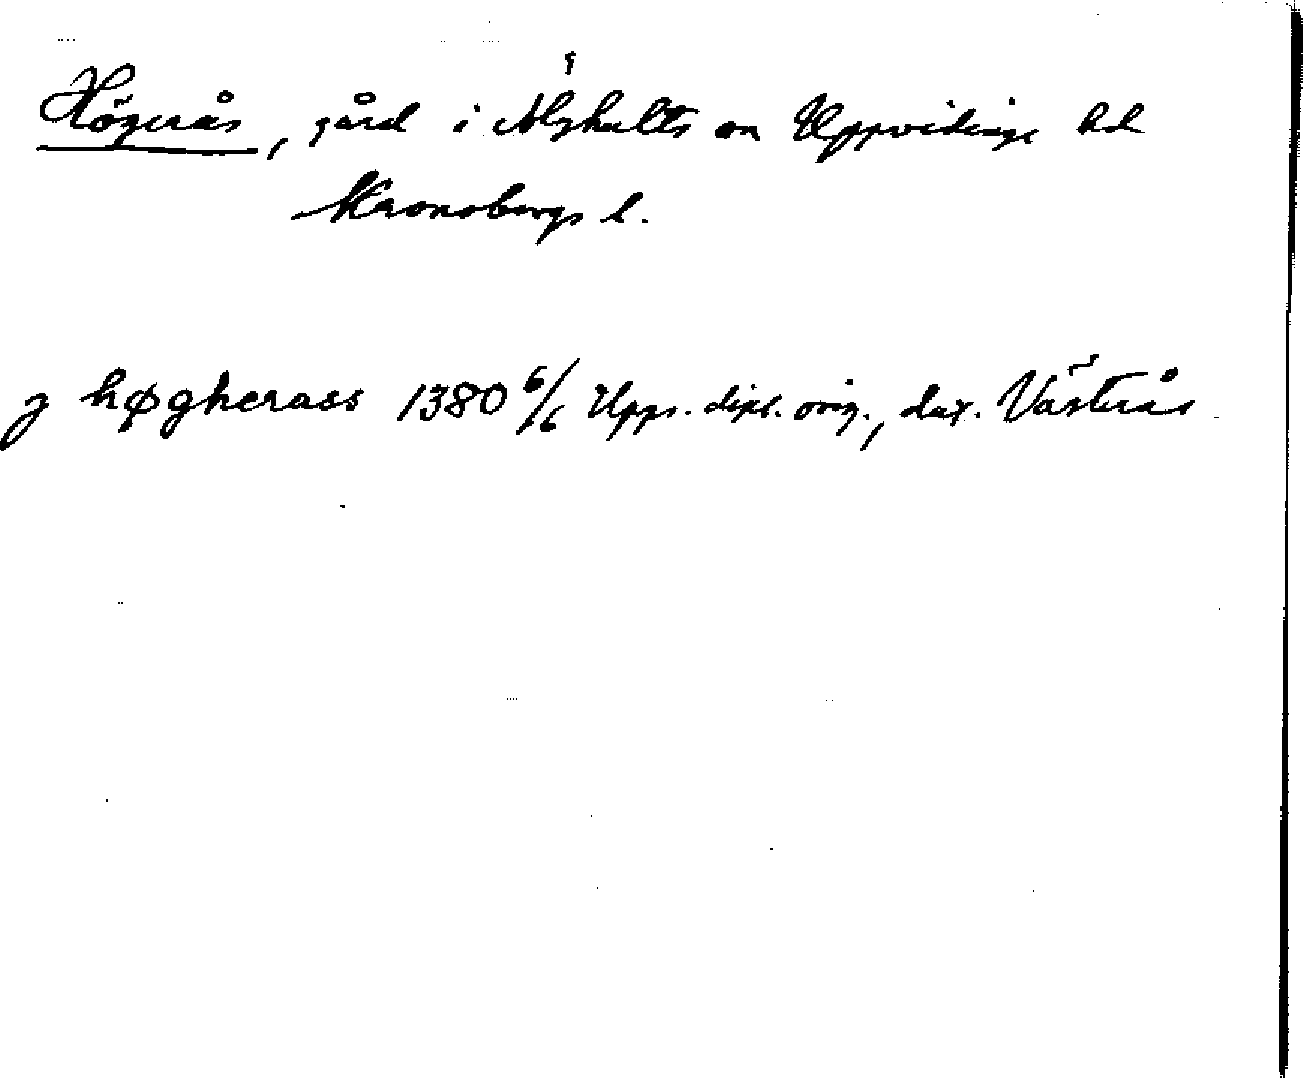 Högerås, gård i Älghults sn Uppvidinge hd
Kronobergs l.
j høgherass 1380 6/6 Upps. dipl. orig., dat. Västerås